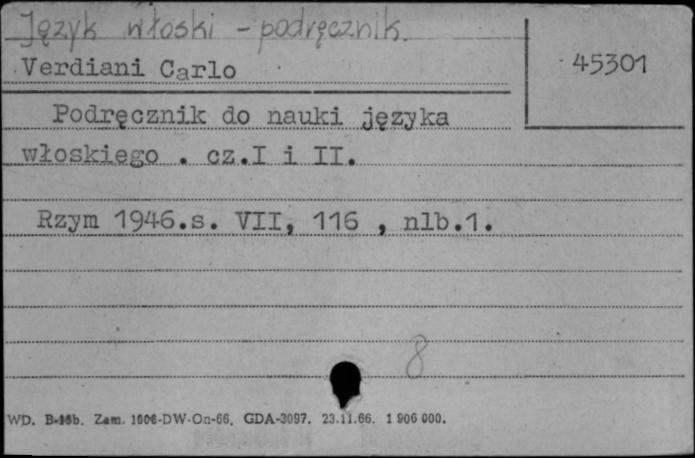 Język włoski - podręcznik.
45301
Verdiani Carlo
Podręcznik do nauki języka
włoskiego . cz.I i II.
Rzym 1946.s. VII, 116 , nlb.1.
8
WD. Zam. GDA-3097. 23.11.66. 1 906 000.